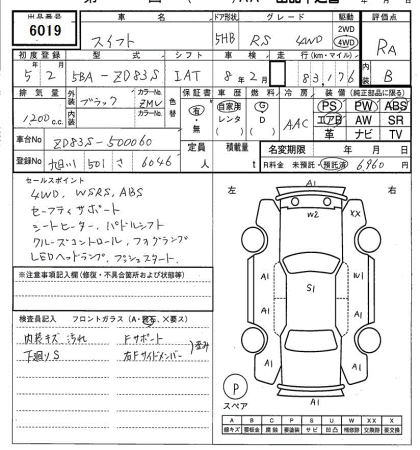 出品番号 車名 ドア形状 グレード 駆動 評価点
6019 スイフト 5HB RS 4WD 2WD 4WD RA
初度登録 型式 シフト 車検 走行(km・マイル) 内装
5年2月 5BA-ZD83S IAT 8年2月 83,176 B
排気量 外装 カラーNo. 色替 保証書 車歴 燃料 冷房 装備(純正部品に限る)
1200c.c. ブラック ZMV 有・無 自家用 レンタ G D AAC PS PW ABS
内装 カラーNo. エアB AW SR
革 ナビ TV
車台No ZD83S-500060 定員 人 積載量 t 名変期限 年 月 日
登録No 旭川 501 さ 6046 R料金 未預託・預託済 6960 円
セールスポイント
4WD, WSRS, ABS
セーフティサポート
シートヒーター, パドルシフト
クルーズコントロール, フォグランプ
LEDヘッドランプ, プッシュスタート
※注意事項記入欄(修復・不具合箇所および状態等)
検査員記入 フロントガラス(A・飛石、×要ス)
内装キズ 汚れ Fサポート
下廻りS 右Fサイドメンバー 歪み
左 右
A1
W2 XX
A1 A1 W1
S1
A1 A1
A1 A1
P
スペア
A B C P S U W X XX
線キズ 要板金 腐蝕 要塗装 サビ 凹凸 補修跡 要交換 交換済